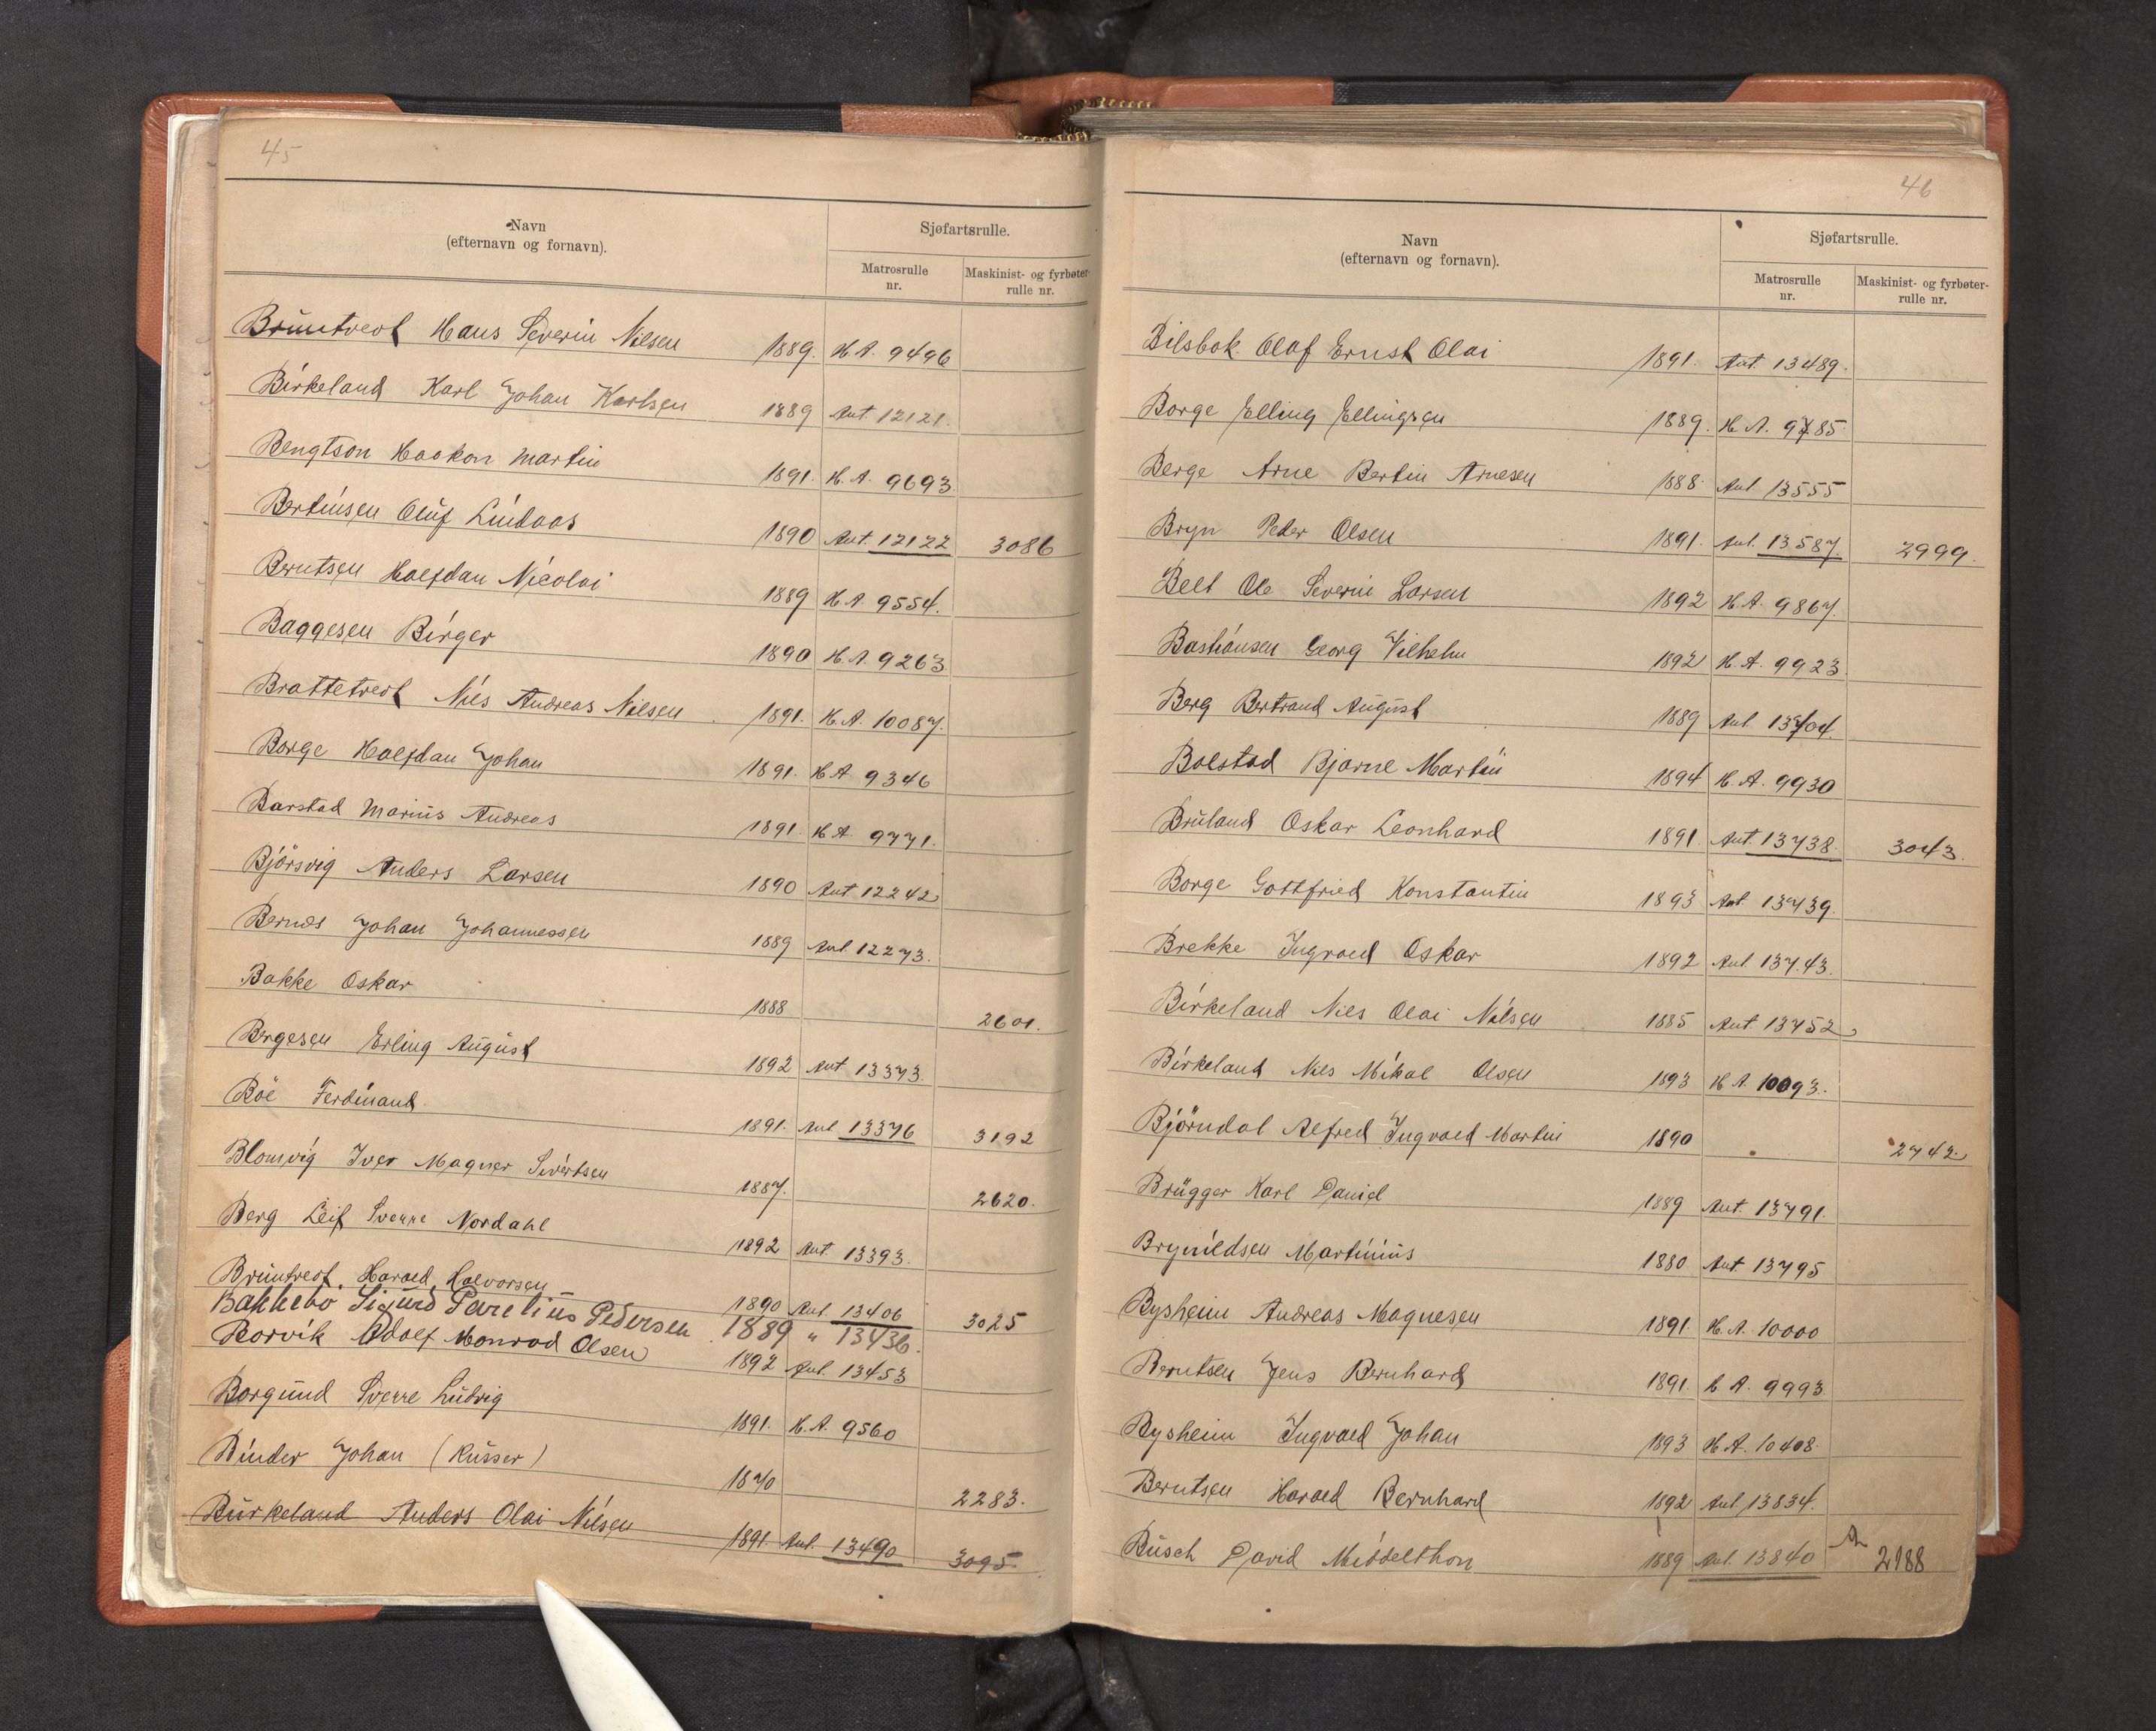 45
Navn
(efternavn og fornavn).
Sjøfartsrulle.
Matrosrulle
nr.
Maskinist- og fyrbøter-
rulle nr.
Bruntveit Hans Severin Nilsen 1889. H.A. 9496
Birkeland Karl Johan Karlsen 1889 Ant. 12121.
Bengtson Haakon Martin 1891. H.A. 9693.
Bertinsen Oluf Lindaas 1890 Ant. 12122 3086
Berntsen Halfdan Nicolai 1889 H.A. 9554.
Baggesen Birger 1890 H.A. 9263
Brattetveit Nils Andreas Nilsen 1891. H.A. 10087.
Borge Halfdan Johan 1891. H.A 9346
Barstad Marius Andreas 1891. H.A 9771.
Björsvig Anders Larsen 1890 Ant 12242
Bernes Johan Johannessen 1889 Ant. 12273.
Bakke Oskar 1888 2601.
Bergesen Erling August 1892 Ant 13373.
Böe Ferdinand 1891. Ant 13376 3192
Blomvig Iver Magner Sivertsen 1887. 2620.
Berg Leif Sverre Nordahl 1892 Ant. 13393.
Bruntveit, Harald, Halvorsen 1890 Ant. 13406 3025
Bakkebø Sigurd Parelius Pedersen 1889 " 13436.
Borvik Adolf Monrad Olsen 1892 Ant. 13453
Borgund Sverre Ludvig 1891. H.A. 9560
Binder Johan (Russer) 1870 2283.
Birkeland Anders Olai Nilsen 1891. Ant. 13490 3095.
46
Navn
(efternavn og fornavn).
Sjøfartsrulle.
Matrosrulle
nr.
Maskinist- og fyrbøter-
rulle nr.
Bilsbak Olaf Ernst Olai 1891. Ant. 13489.
Borge Elling Ellingsen 1889. H.A. 9785
Berge Arne Bertin Arnesen 1888 Ant 13555
Bryn Peder Olsen 1891. Ant. 13587. 2999.
Belt Ole Severin Larsen 1892 H.A. 9867.
Bastiansen Georg Vilhelm 1892 H.A. 9923
Berg Bertrand August 1889 Ant 13704.
Bolstad Bjarne Martin 1894 H.A. 9930
Bruland Oskar Leonhard 1891 Ant. 13738. 3043.
Borge Gottfried Konstantin 1893 Ant. 13739.
Brekke Ingvald Oskar 1892 Ant 13743.
Birkeland Nils Olai Nilsen 1885 Ant 13752
Birkeland Nils Mikal Olsen 1893 H.A. 10093.
Björndal Alfred Ingvald Martin 1890 2742.
Brügger Karl Daniel 1889 Ant. 13791.
Brynildsen Martinius 1880 Ant. 13795
Bysheim Andreas Magnesen 1891 H.A. 10000
Berntsen Jens Bernhard 1891 H.A. 9993
Bysheim Ingvald Johan 1893 H.A. 10408.
Berntsen Harald Bernhard 1892 Ant 13834.
Busch David Middelthon 1889 Ant. 13840 2188